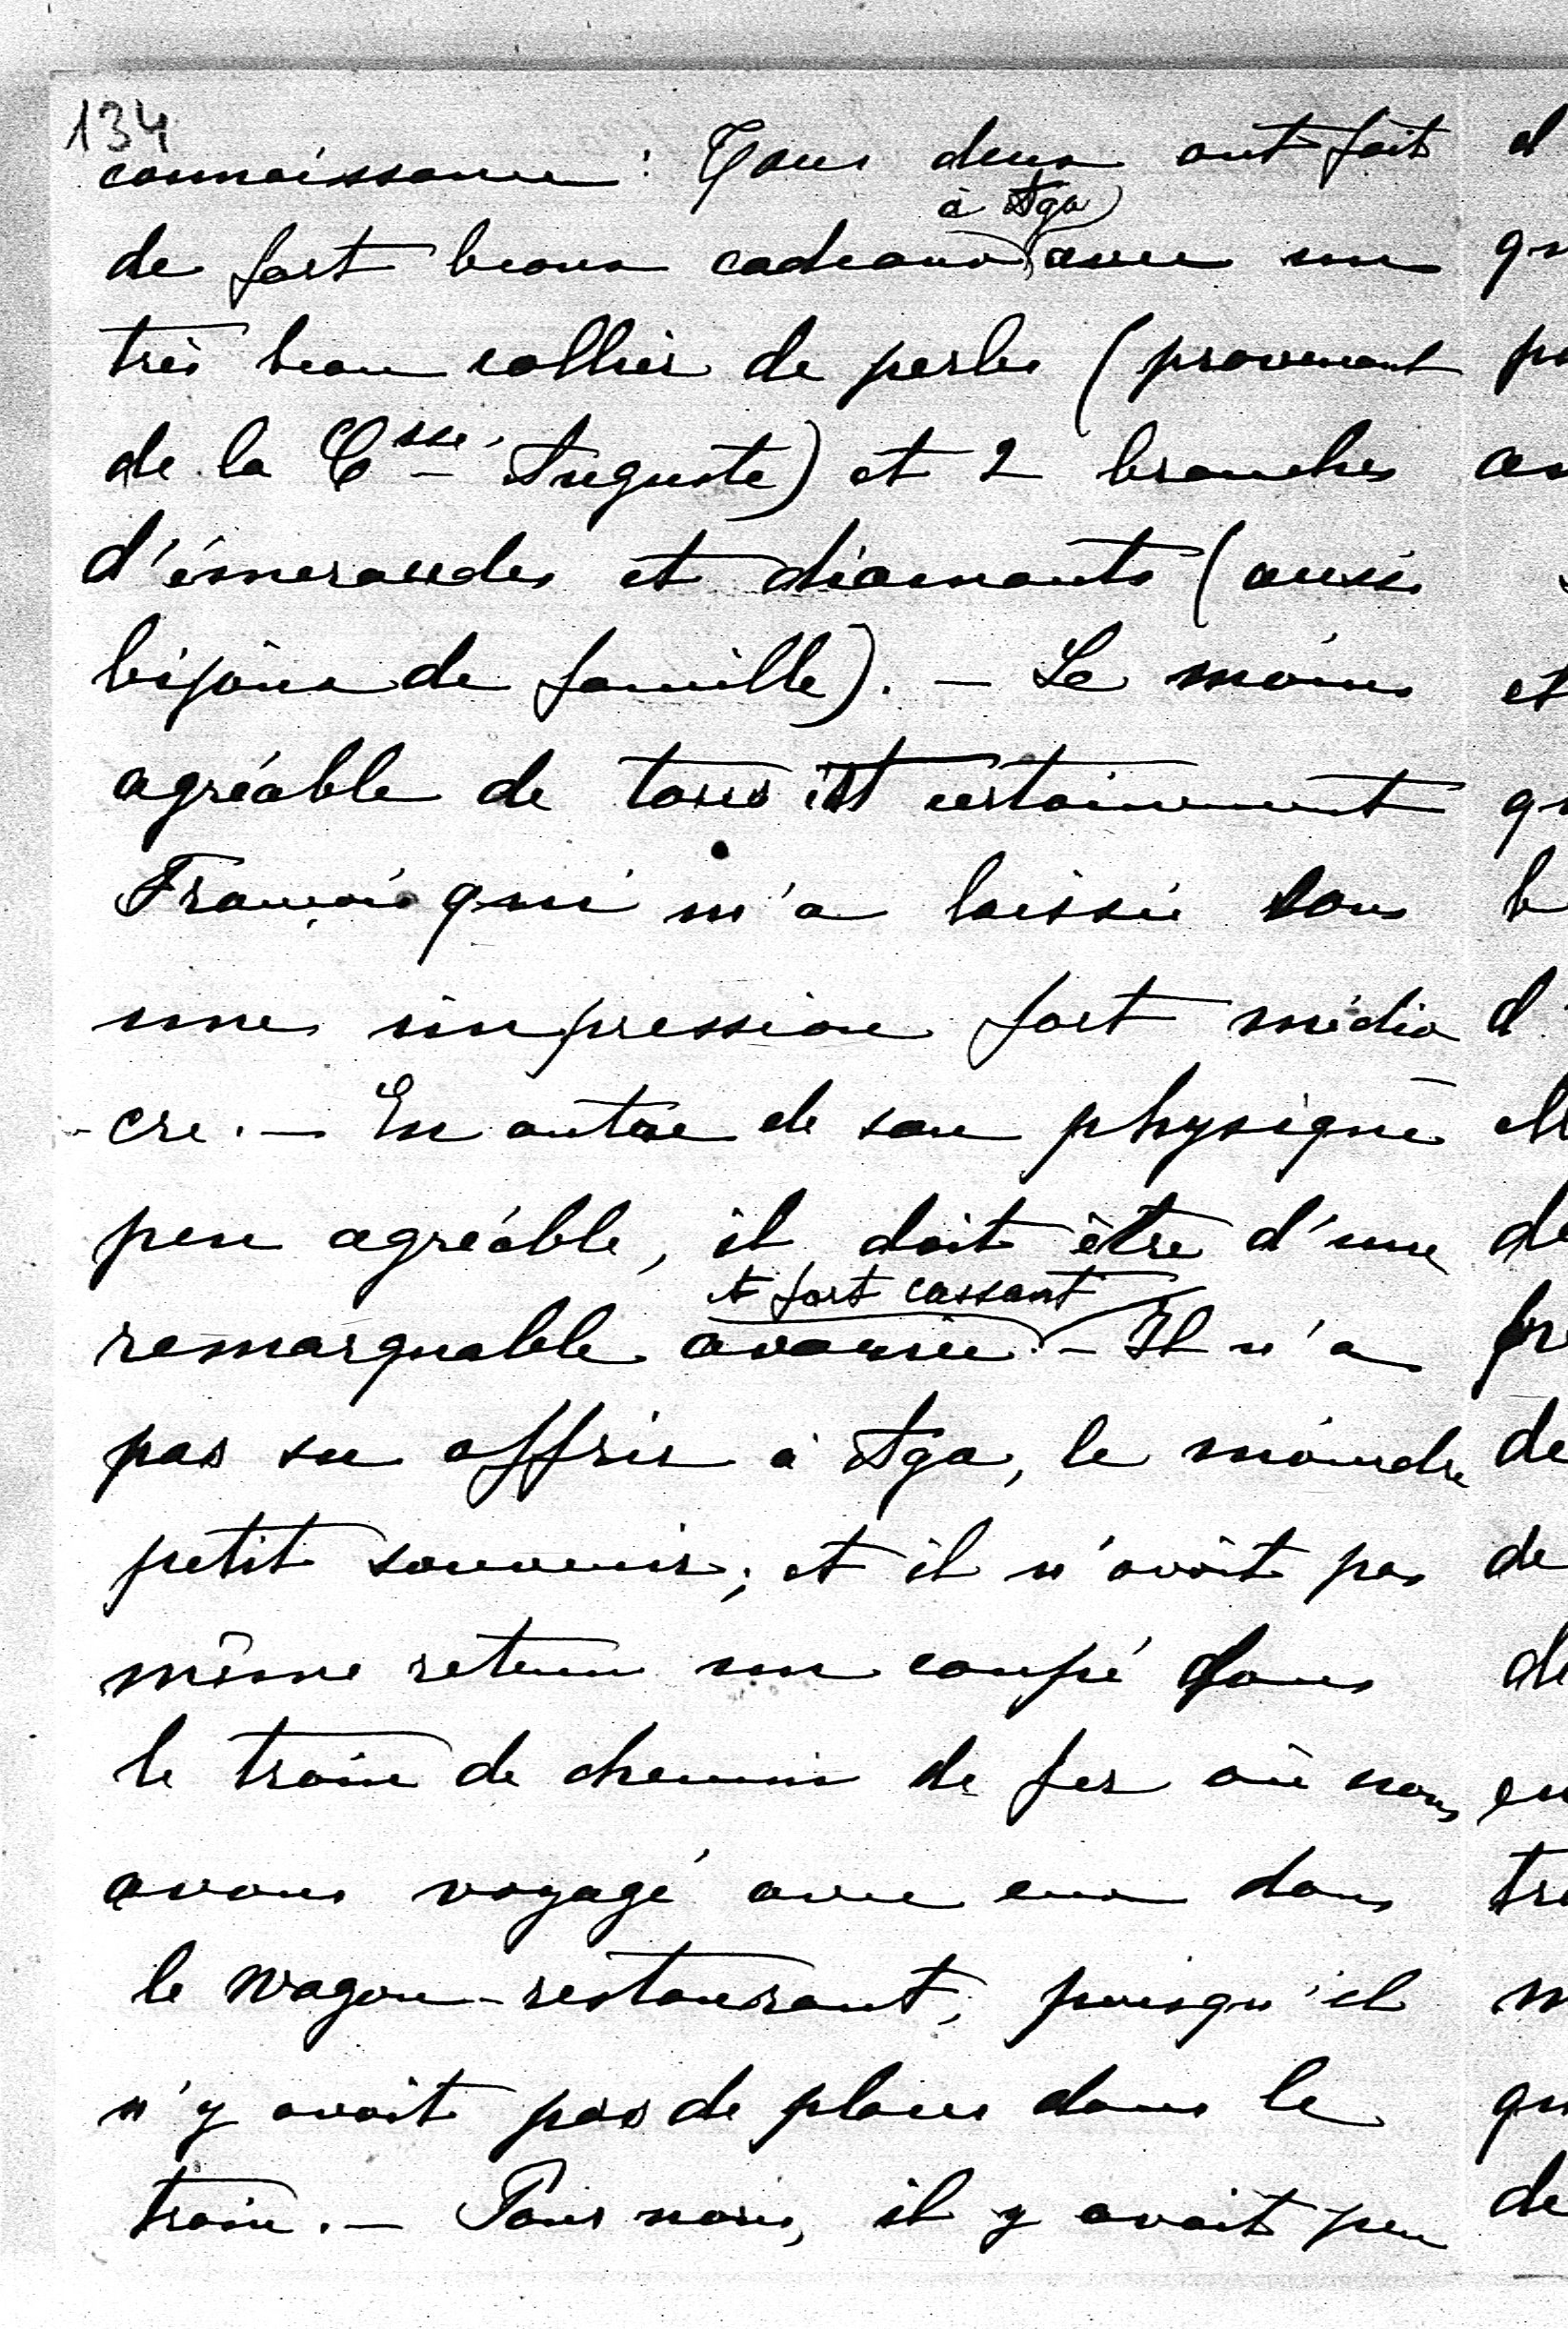 134
connaissance : Tous deux ont fait
à Aga
de fort beaux cadeaux avec un
très beau collier de perles (provenant
de la Csse. Auguste) et 2 branches
d'émeraudes et diamants (aussi
bijoux de famille). — Le moins
agréable de tous est certainement
François qui m'a laissé sous
une impression fort médio
-cre. — En outre de son physique
peu agréable, il doit être d'une
et fort cassant
remarquable avarice. — Il n'a
pas su offrir à Aga, le moindre
petit souvenir; et il n'avait pas
même retenu un coupé dans
le train de chemin de fer où nous
avons voyagé avec eux dans
le wagon-restaurant; puisqu'il
n'y avait pas de places dans le
train. — Pour nous, il y avait peu